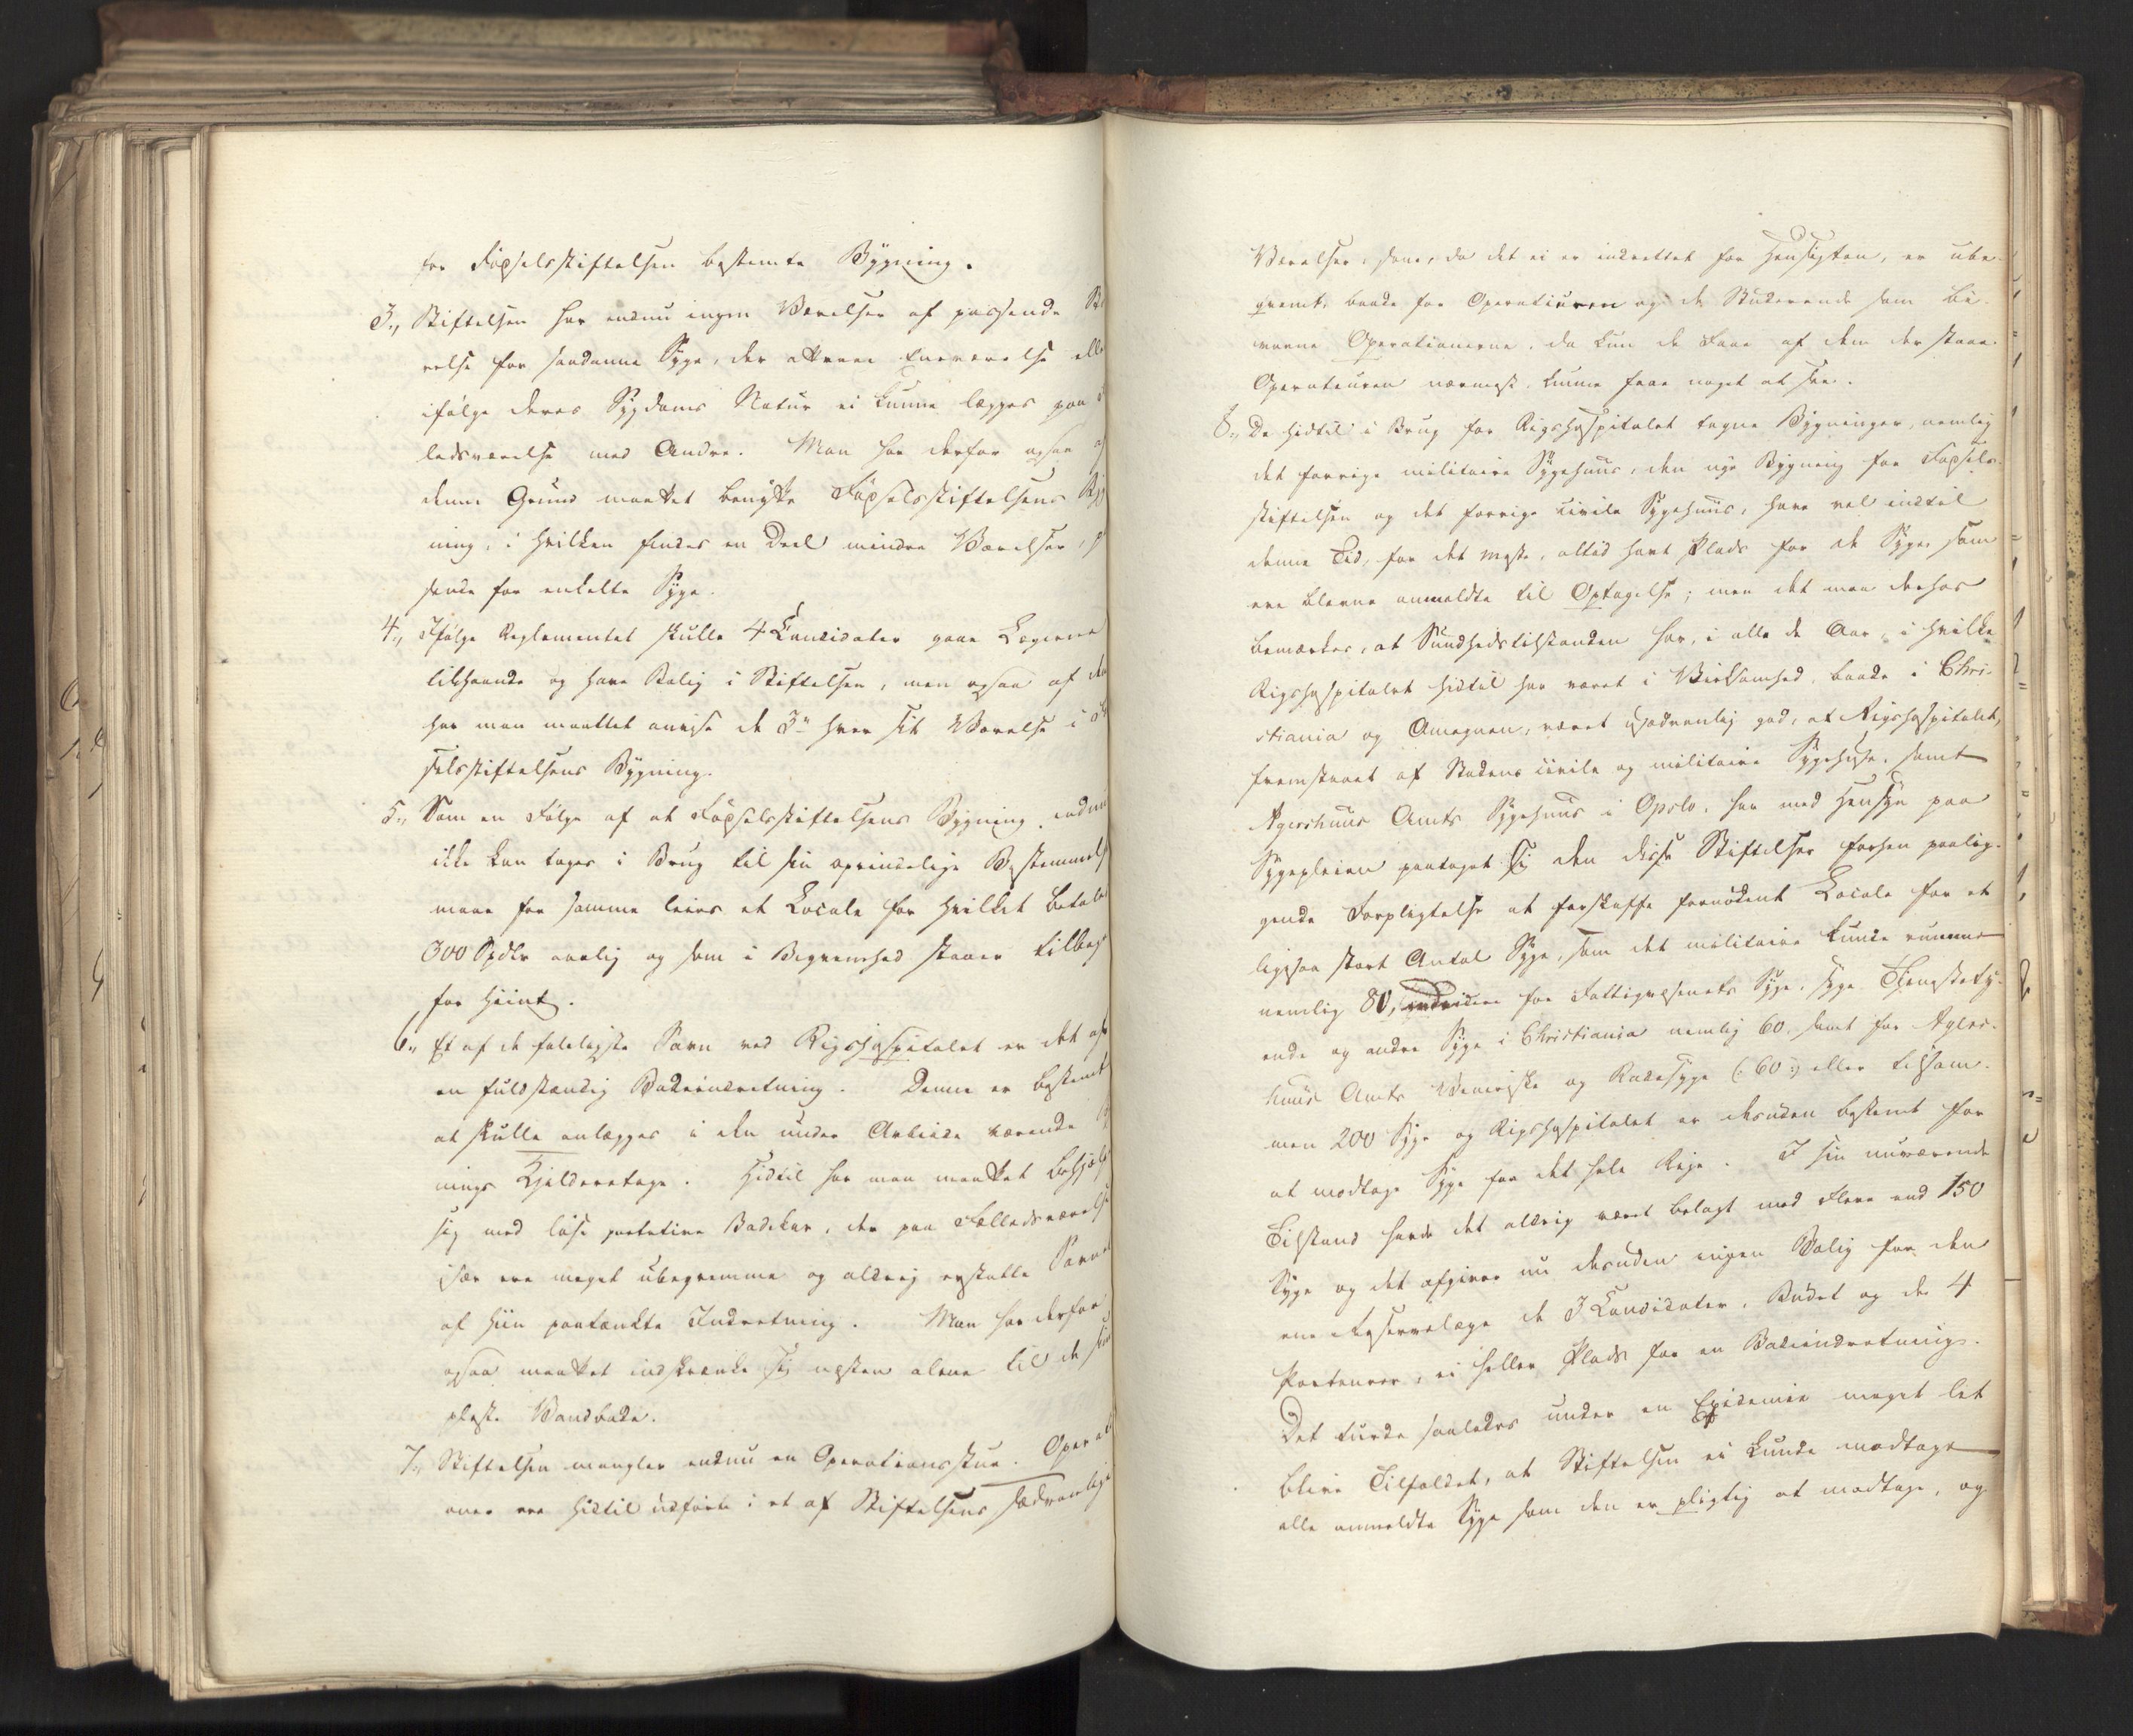 for Födselsstiftelsen bestemte Bygning.
3., Stiftelsen har endnu ingen Værelser af passende
relse for saadanne Syge, der attraae Eneværelse elle
ifölge deres Sygdoms Natur ei kunne lægges paa
ledsværelse med Andre. Man har derfor ogsaa
denne Grund maattet benytte Födselsstiftelsens Byg
ning, i hvilken findes en Deel mindre Værelser, p
sende for enkelte Syge.
4., Ifölge Reglementet skulle 4 Candidater gaae Lægerne
tilhaande og have Bolig i Stiftelsen, men ogsaa af
har man maattet anvise de 3n hver sit Værelse i
selsstiftelsens Bygning.
5., Som en Fölge af at Födselsstiftelsens Bygning endnu
ikke kan tages i Brug til sin oprindelige Bestemmels
maae for samme leies et Locale for hvilket betales
300 Spdlr aarlig og som i Beqvemhed staaer tilbage
for hiint.
6., Et af de föleligste Savn ved Rigshospitalet er det af
en fuldstændig Badeindretning. Denne er bestemt
at skulle anlægges i den under Arbeide værende B
nings Kjelderetage. Hidtil har man maattet behjælpe
sig med löse portative Badekar, der paa Fællesværelse
især ere meget ubeqvemme og aldrig erstatte Savnet
af hiin paatænkte Indretning. Man har derfor
ogsaa maattet indskrænke sig næsten alene til de sim
pleste Vandbade.
7., Stiftelsen mangler endnu en Operationsstue. Operati
oner ere hidtil udförte i et af Stiftelsens sædvanlige
Værelser, som, da det ei er indrettet for Hensigten, er ube
qvemt, baade for Operateuren og de Studerende som bi-
vaane Operationerne, da kun de Faae af dem der staae
Operateuren nærmest, kunne faae noget at see.
8., De hidtil i Brug for Rigshospitalet tagne Bygninger, nemlig
det forrige militaire Sygehuus, den nye Bygning for Födsels-
stiftelsen og det forrige civile Sygehuus, have vel indtil
denne Tid, for det meste, altid havt Plads for de Syge, som
ere blevne anmeldte til Optagelse; men det maa derhos
bemærkes, at Sundhedstilstanden har, i alle de Aar, i hvilke
Rigshospitalet hidtil har været i Virksomhed, baade i Chri-
stiania og Omegnen, været usædvanlig god, at Rigshospitalet,
fremstaaet af Stadens civile og militaire Sygehuse, samt
Agershuus Amts Sygehuus i Opslo, har med Hensyn paa
Sygepleien paataget sig den disse Stiftelser forhen paalig-
gende Forpligtelse at forskaffe fornödent Locale for et
ligesaa stort Antal Syge, som det militaire kunde rumme
nemlig 80, for Fattigvæsenets Syge, syge Tjenestety-
ende og andre Syge i Christiania nemlig 60, samt for Agers-
huus Amts Veneriske og Radesyge (: 60 :) eller tilsam-
men 200 Syge og Rigshospitalet er desuden bestemt for
at modtage Syge fra det hele Rige. I sin nuværende
Tilstand havde det aldrig været belagt med flere end 150
Syge og det afgiver nu desuden ingen Bolig for den
ene Reservelæge de 3 Candidater, Budet og de 4
Porteurer, ei heller Plads for en Badeindretning.
Det turde saaledes under en Epidemie meget let
blive Tilfældet, at Stiftelsen ei kunde modtage
alle anmeldte Syge som den er pligtig at modtage, og